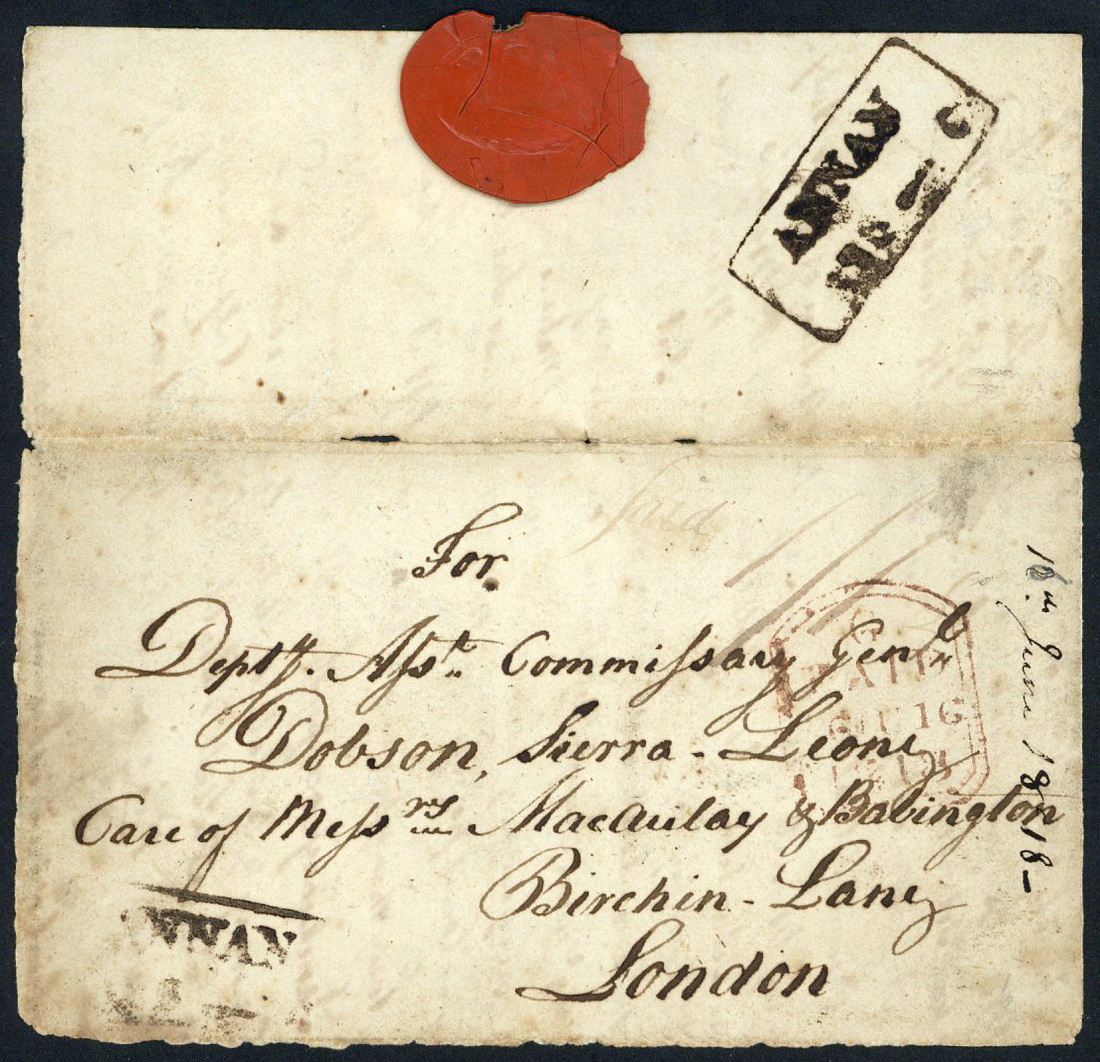 ANNAN
For
Deptʸ. Aſsᵗ. Commiſsary Genˡ.
Dobson, Sierra-Leone
Care of Meſsʳˢ Macaulay & Babington
Birchin-Lane
London
Paid
PAID
JU 16
1818
June 1818-
ANNAN